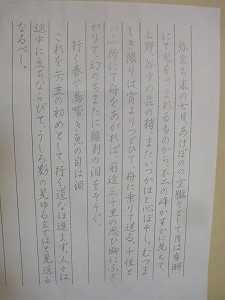 弥生も末の七日、あけぼのの空朧々として、月は有明
にて光をさまれるものから、不二の峰かすかに見えて、
上野・谷中の花の梢、またいつかはと心ぼそし。むつま
しき限りは宵よりつどひて、舟に乗りて送る。千住と
いふ所にて舟をあがれば、前途三千里の思ひ胸にふさ
がりて、幻のちまたに離別の涙をそそぐ。
行く春や鳥啼き魚の目は涙
これを矢立の初めとして、行く道なほ進まず。人々は
途中に立ちならびて、うしろ影の見ゆるまではと見送る
なるべし。